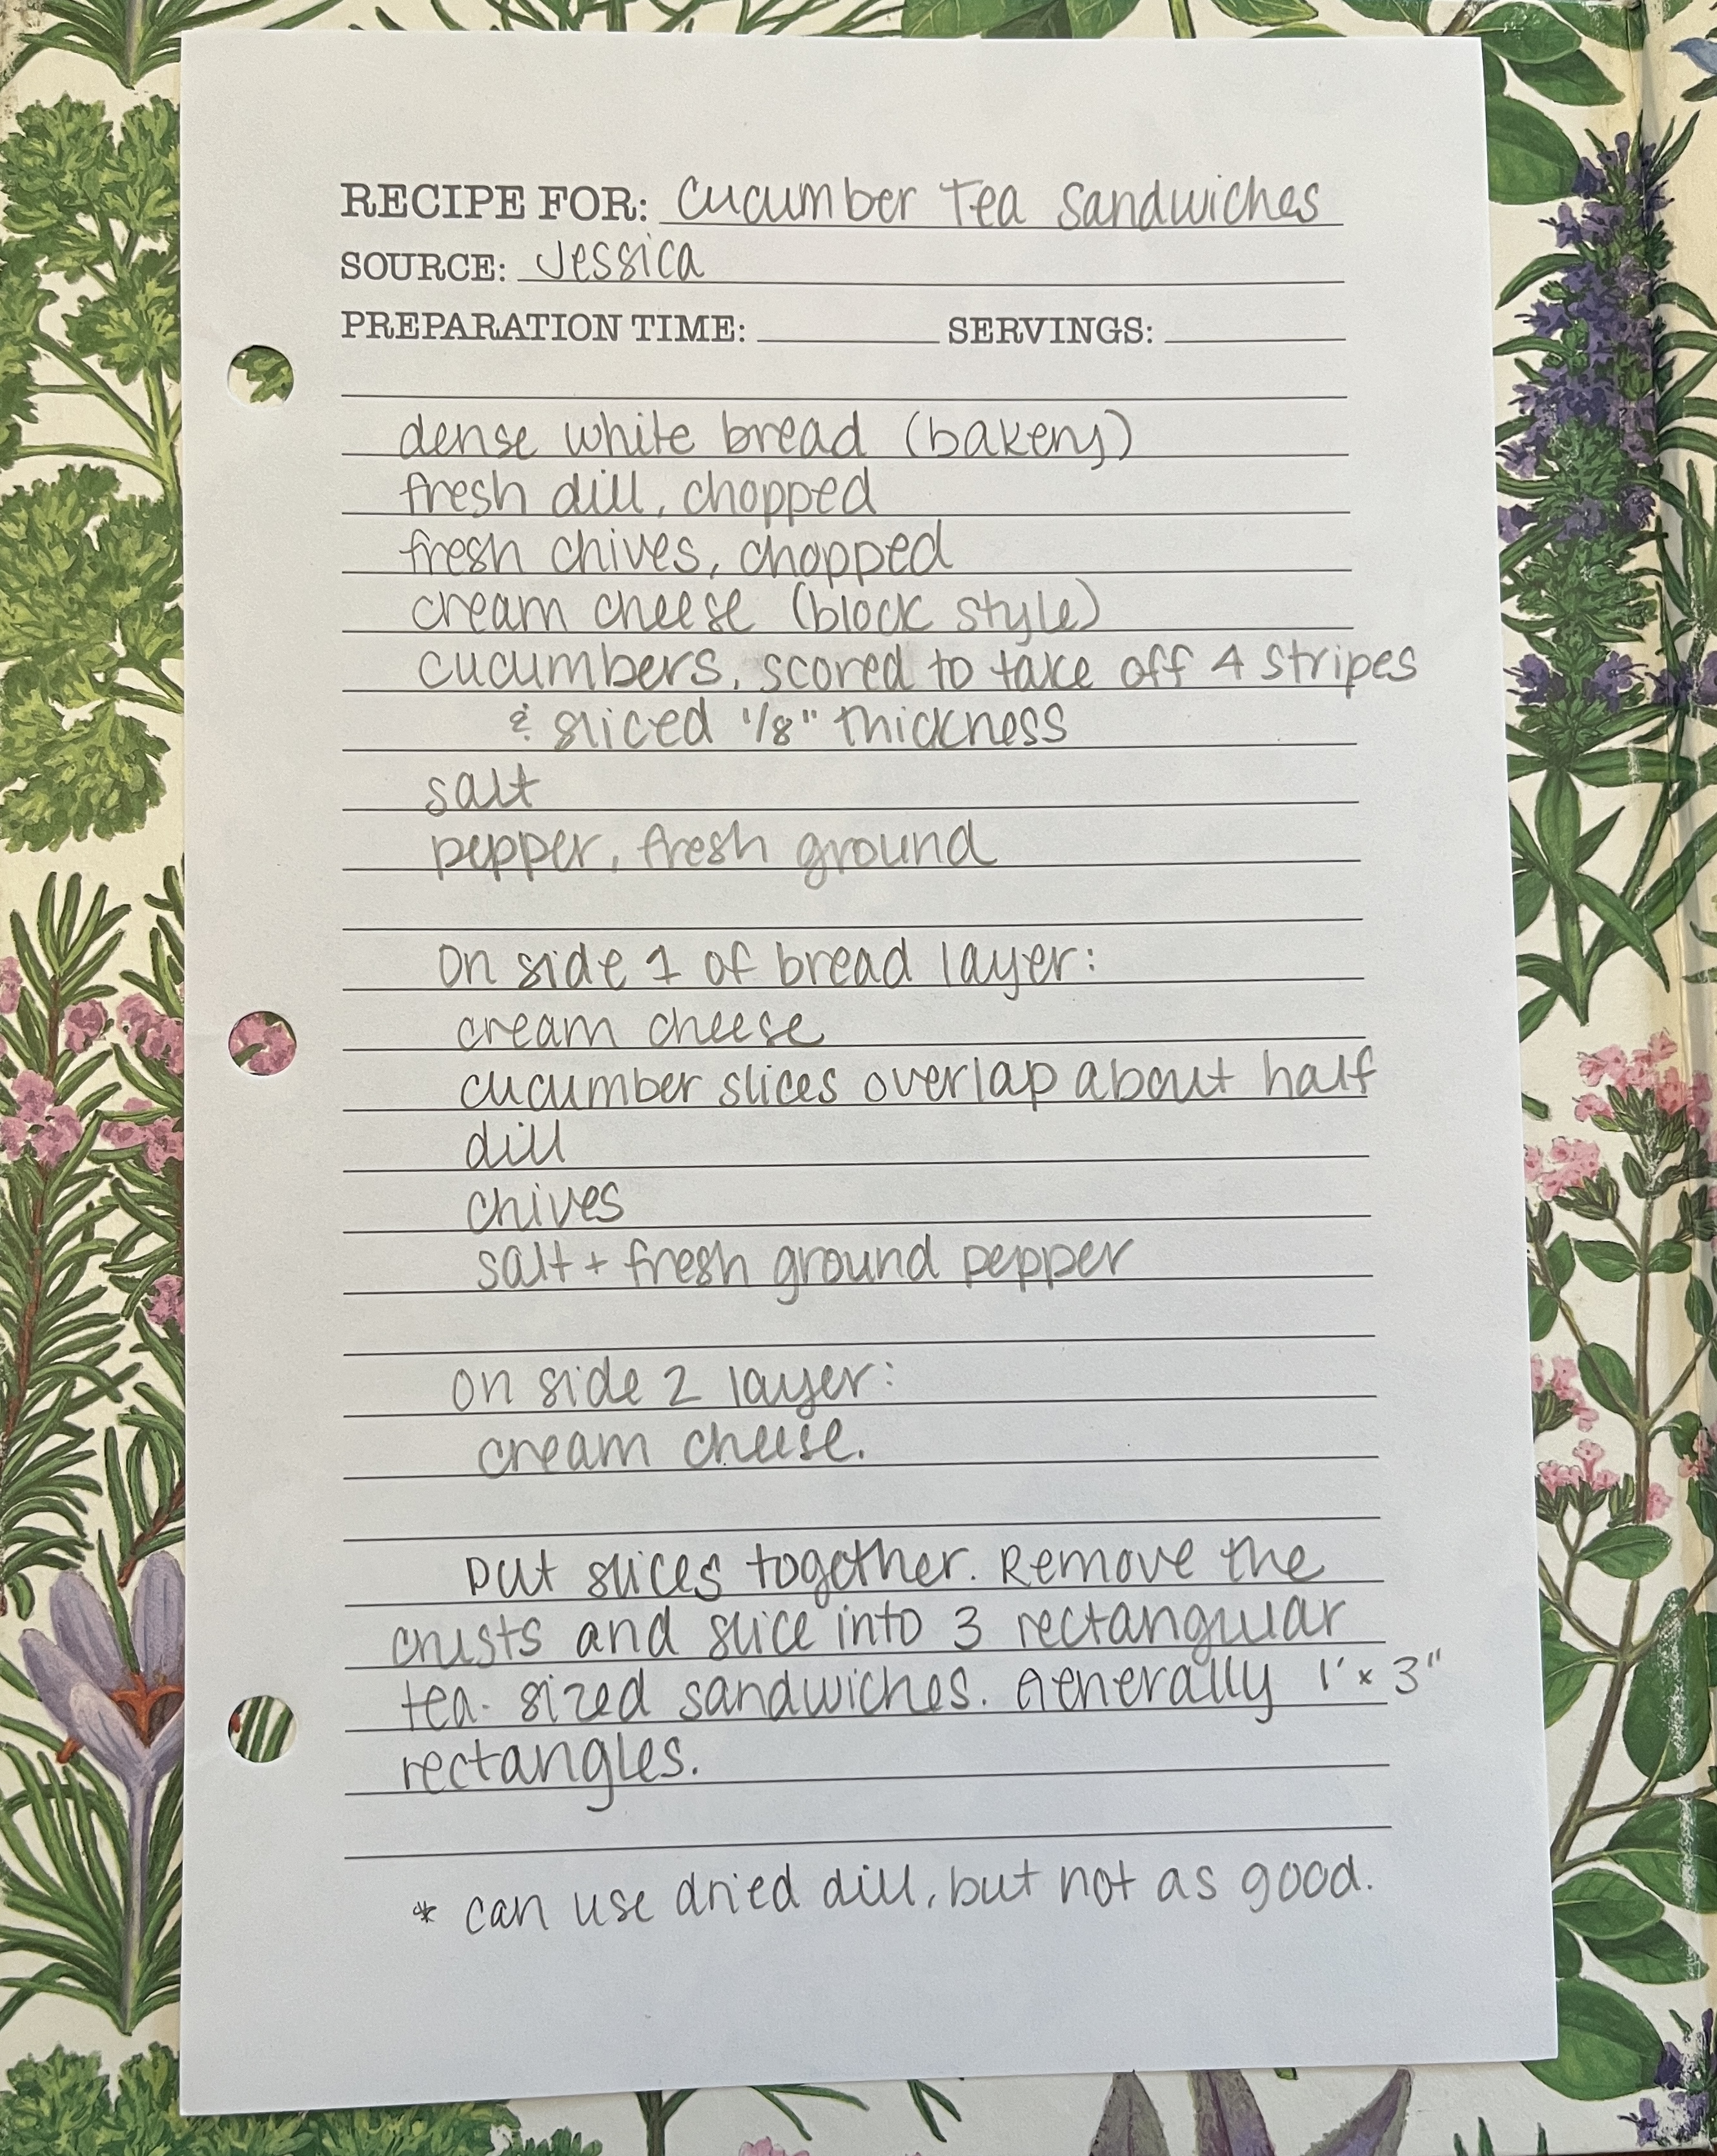 RECIPE FOR: Cucumber Tea Sandwiches
SOURCE: Jessica
PREPARATION TIME: SERVINGS:
dense white bread (bakery)
fresh dill, chopped
fresh chives, chopped
cream cheese (block style)
cucumbers, scored to take off 4 stripes
& sliced 1/8" thickness
salt
pepper, fresh ground
On side 1 of bread layer:
cream cheese
cucumber slices overlap about half
dill
chives
salt + fresh ground pepper
on side 2 layer:
cream cheese.
Put slices together. Remove the
crusts and slice into 3 rectangular
tea-sized sandwiches. Generally 1' x 3"
rectangles.
* can use dried dill, but not as good.